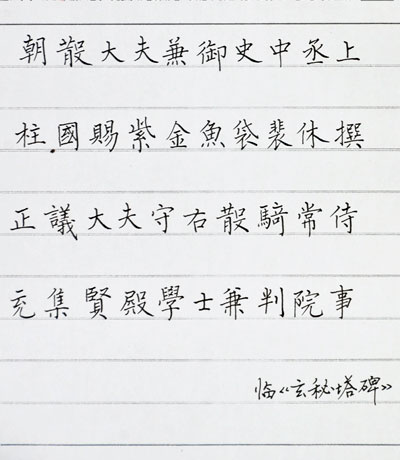 朝散大夫兼御史中丞上
柱國賜紫金魚袋裴休撰
正議大夫守右散騎常侍
充集賢殿學士兼判院事
临《玄秘塔碑》